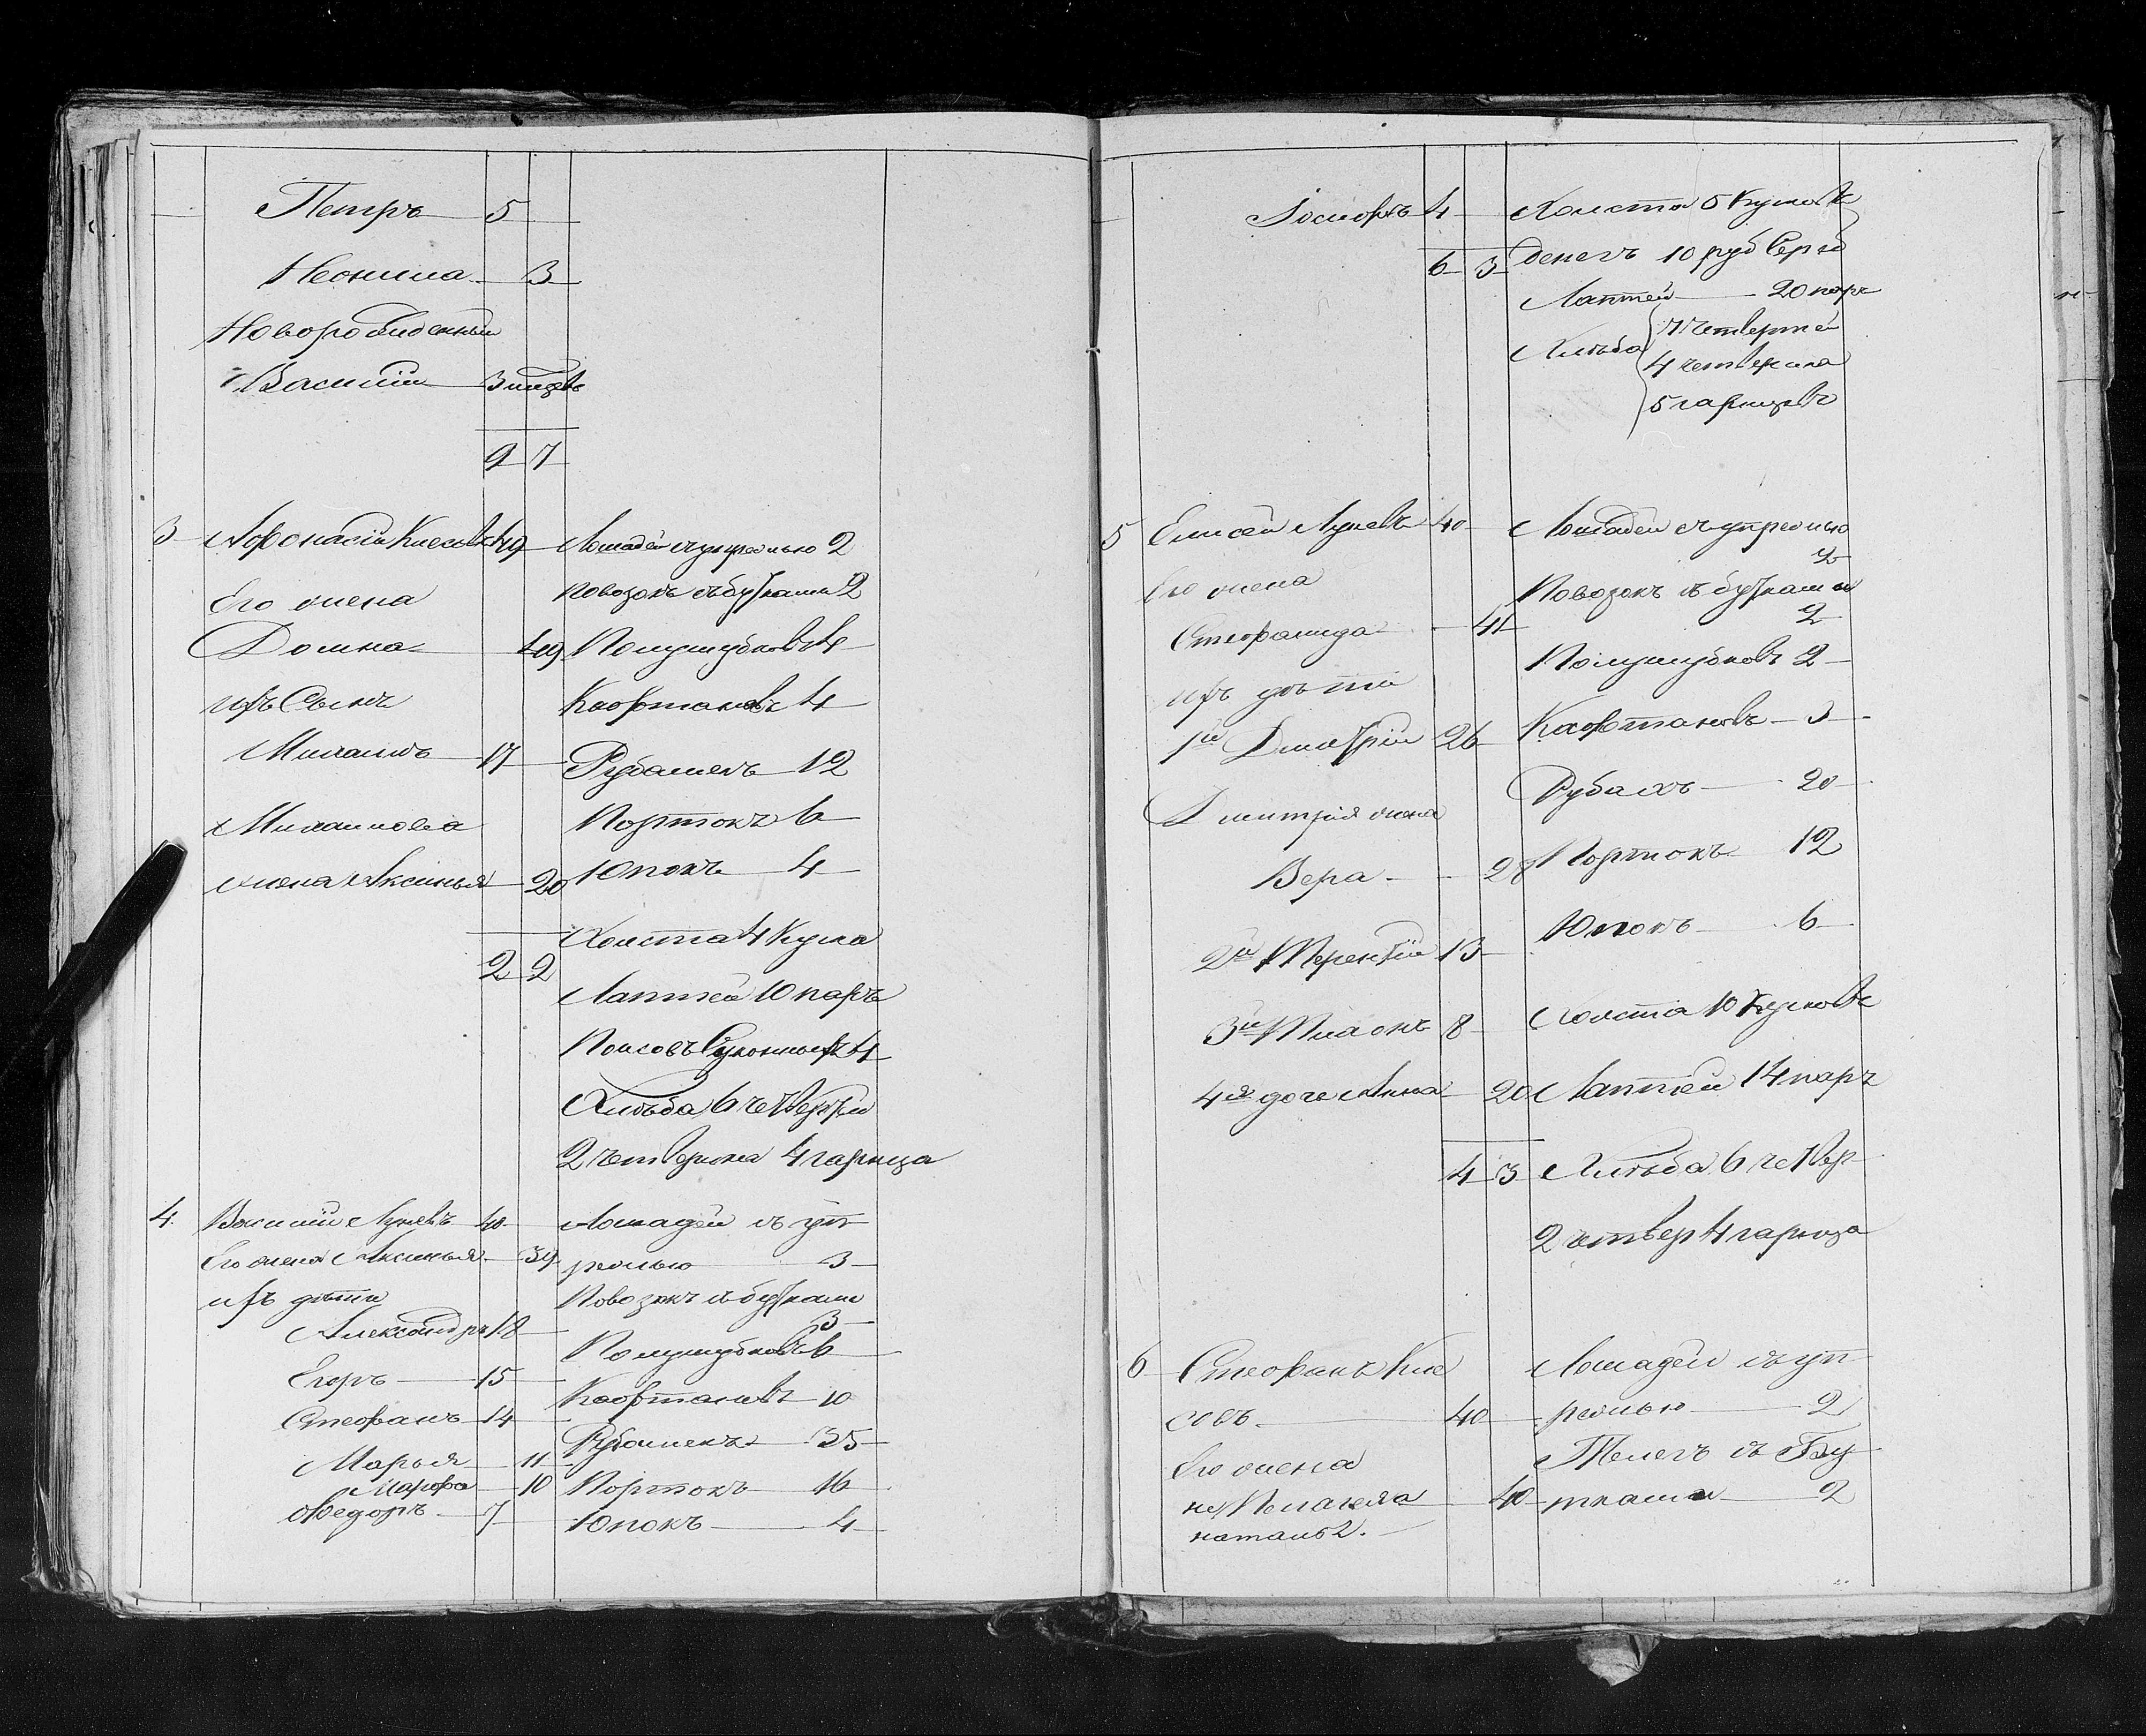 Петръ 5
Неонила 3
Новорожденный
Василій 3 мцвъ
9 7
3 Афонасій Кисовъ 49 Лошадей съ упряжью 2
Его жена Повозокъ съ будками 2
Домна 49 Полушубковъ 4
ихъ Сынъ Кафтановъ 4
Михаилъ 17 Рубашекъ 12
Михаилова Портокъ 6
жена Аксинья 20 Юпокъ 4
Холста 4 куска
2 2
Лаптей 10 паръ
Поясовъ Суконныхъ 4
Хлѣба 6 четвертей
2 четверика 4 гарнца
4. Василій Луневъ 40 Лошадей съ уп
Его жена Аксинья 39 ряжью 3
ихъ дѣти Повозокъ съ будками
Александръ 18 3
Полушубковъ 6
Егоръ 15
Кафтановъ 10
Стефанъ 14
Рубашекъ 35
Марья 11
Марфа 10 Портокъ 16
Федоръ 7 Юпокъ 4
Іосифъ 4 Холста 5 кусковъ
6 3 денегъ 10 руб Сереб
Лаптей 20 паръ
Хлѣба 7 четвертей
4 четверика
5 гарнцевъ
5 Елисей Луневъ 40 Лошадей съ упряжью
2
Его жена Повозокъ съ будками
Стефанида 41 2
Полушубковъ 2
ихъ дѣти
1й Дмитрій 26 Кафтановъ 3
Рубахъ 20
Дмитрія жена
Вера 28 Портокъ 12
Юпокъ 6
2й Терентій 13
3й Тихонъ 8 Холста 10 кусковъ
4я дочь Анна 20 Лаптей 14 паръ
4 3 Хлѣба 6 четвер
2 четвер 4 гарнца
6 Стефанъ Ки Лошадей съ уп
совъ 40 ряжью 2
Его жена Телегъ съ Бу
Пелагея 40 тками 2